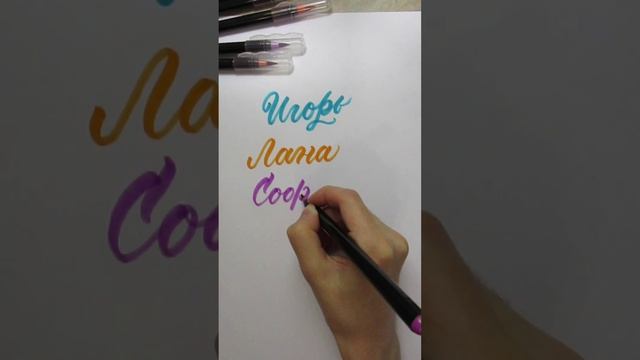 Игорь
Лана
Соф